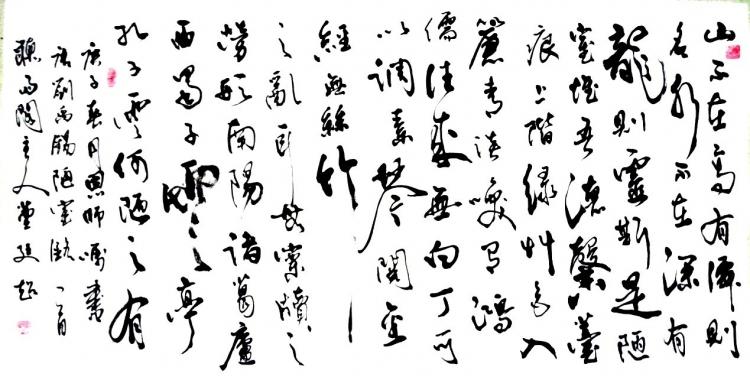 山不在高有僊則
名水不在深有
龍則靈斯是陋
室惟吾德馨苔
痕上階綠艸色入
簾青談笑有鴻
儒往來無白丁可
以調素琴閱金
經無絲竹
之亂耳無案牘之
勞形南陽諸葛廬
西蜀子雲亭
孔子云何陋之有
庚子春月囑書
唐劉禹錫陋室銘一首
聽雨閣主人